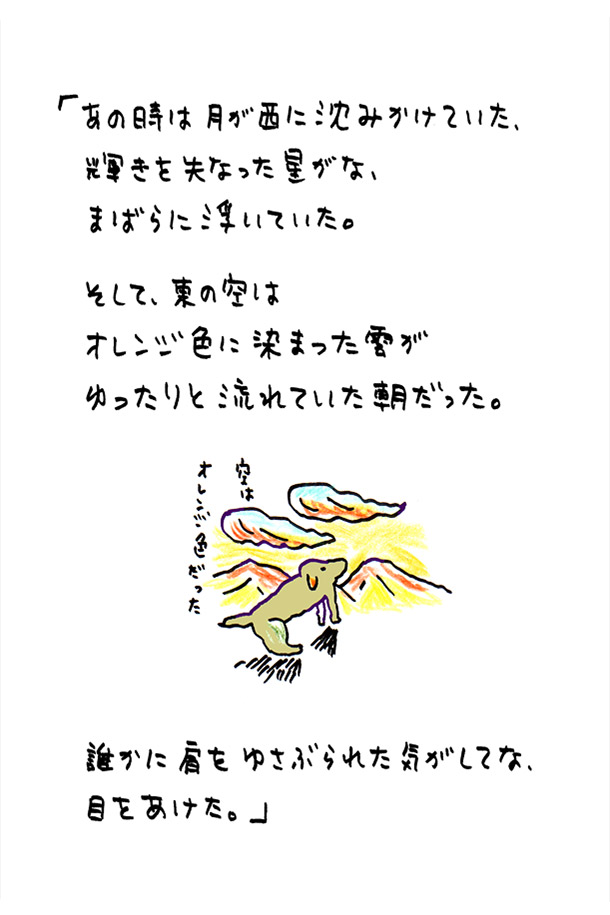 「あの時は月が西に沈みかけていた、
輝きを失なった星がな、
まばらに浮いていた。
そして、東の空は
オレンジ色に染まった雲が
ゆったりと流れていた朝だった。
空は
オレンジ色だった
誰かに肩をゆさぶられた気がしてな、
目をあけた。」